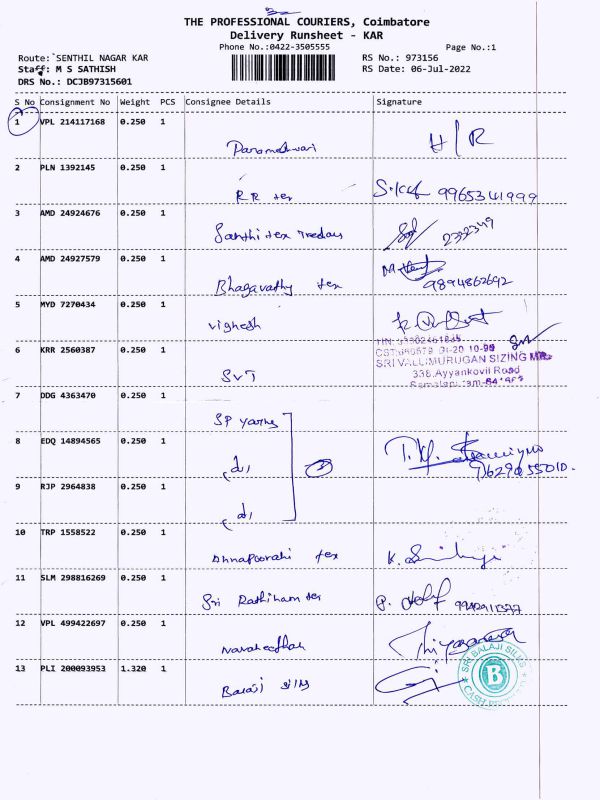 THE PROFESSIONAL COURIERS, Coimbatore
Delivery Runsheet - KAR
Phone No.:0422-3505555
Page No.:1
Route: SENTHIL NAGAR KAR
RS No.: 973156
Staff: M S SATHISH
RS Date: 06-Jul-2022
DRS No.: DCJB97315601
S No Consignment No Weight PCS Consignee Details Signature
1 VPL 214117168 0.250 1
Parameshwari H/R
2 PLN 1392145 0.250 1
RR tex 9965341999
3 AMD 24924676 0.250 1
Santhi tex 2332349
4 AMD 24927579 0.250 1
Bhagavathy tex 9894862692
5 MYD 7270434 0.250 1
Vighesh
6 KRR 2560387 0.250 1
SVT
SRI VALLIMURUGAN SIZING
338,Ayyankovil Road
7 DDG 4363470 0.250 1
SP yarns
8 EDQ 14894565 0.250 1
9 RJP 2964838 0.250 1
10 TRP 1558522 0.250 1
Annapoorani tex
11 SLM 298816269 0.250 1
Sri Rathinam tex
12 VPL 499422697 0.250 1
13 PLI 200093953 1.320 1
Balaji silks
SRI BALAJI SILKS
B